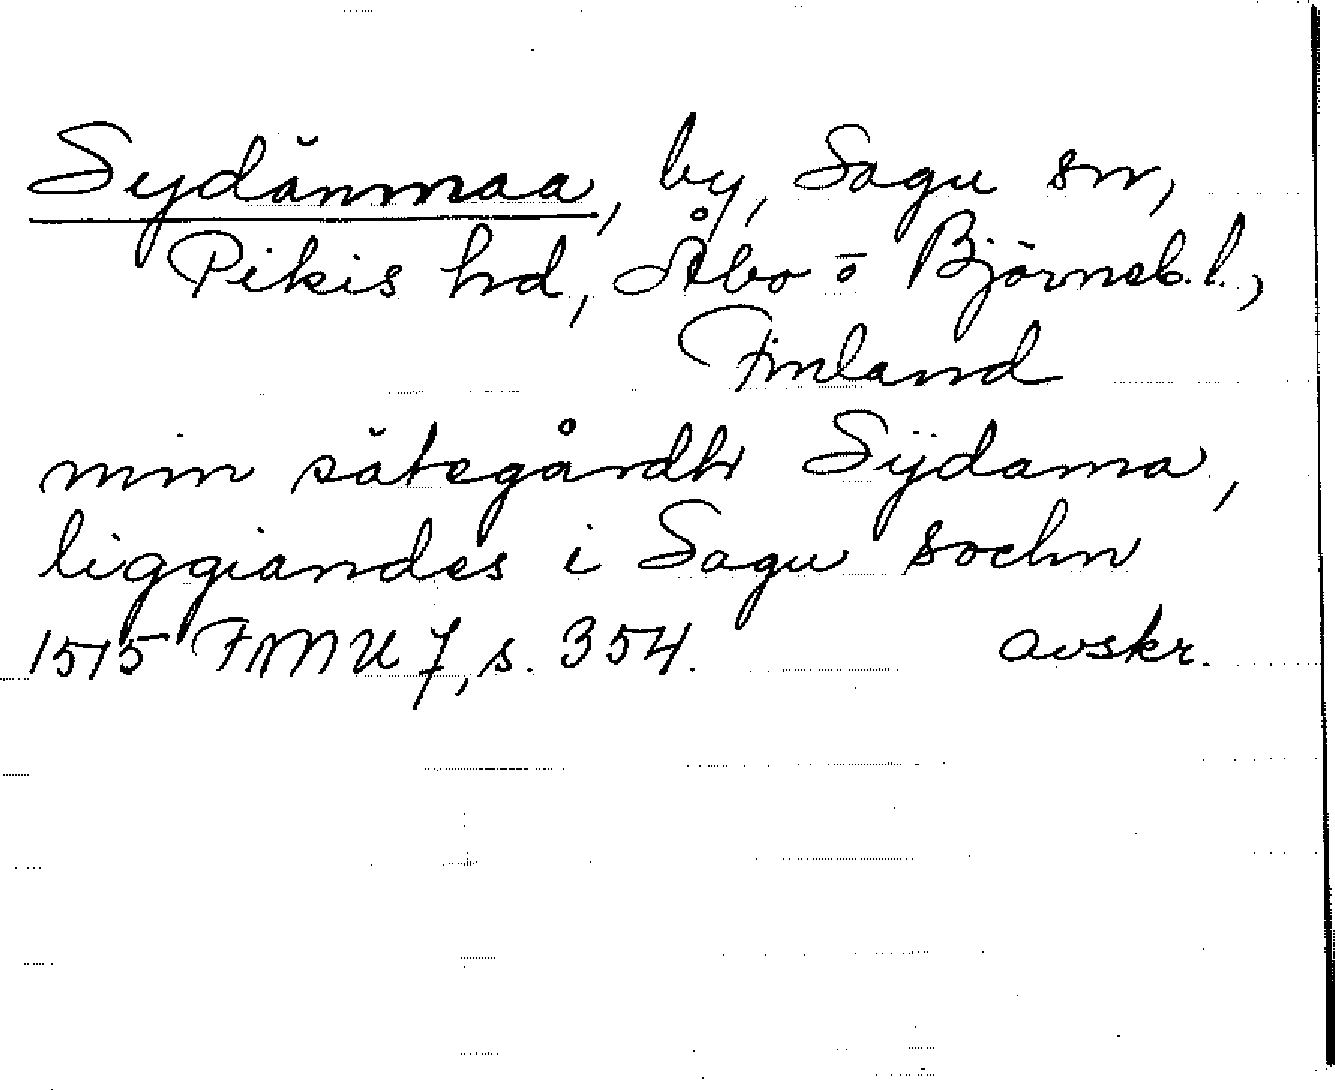 Sydänmaa, by, Sagu sn,
Pikis hd, Åbo o Björneb. l.,
Finland
min sätegårdh Sÿdama,
liggiandes i Sagu sochn
1515 FMU 7, s. 354. avskr.